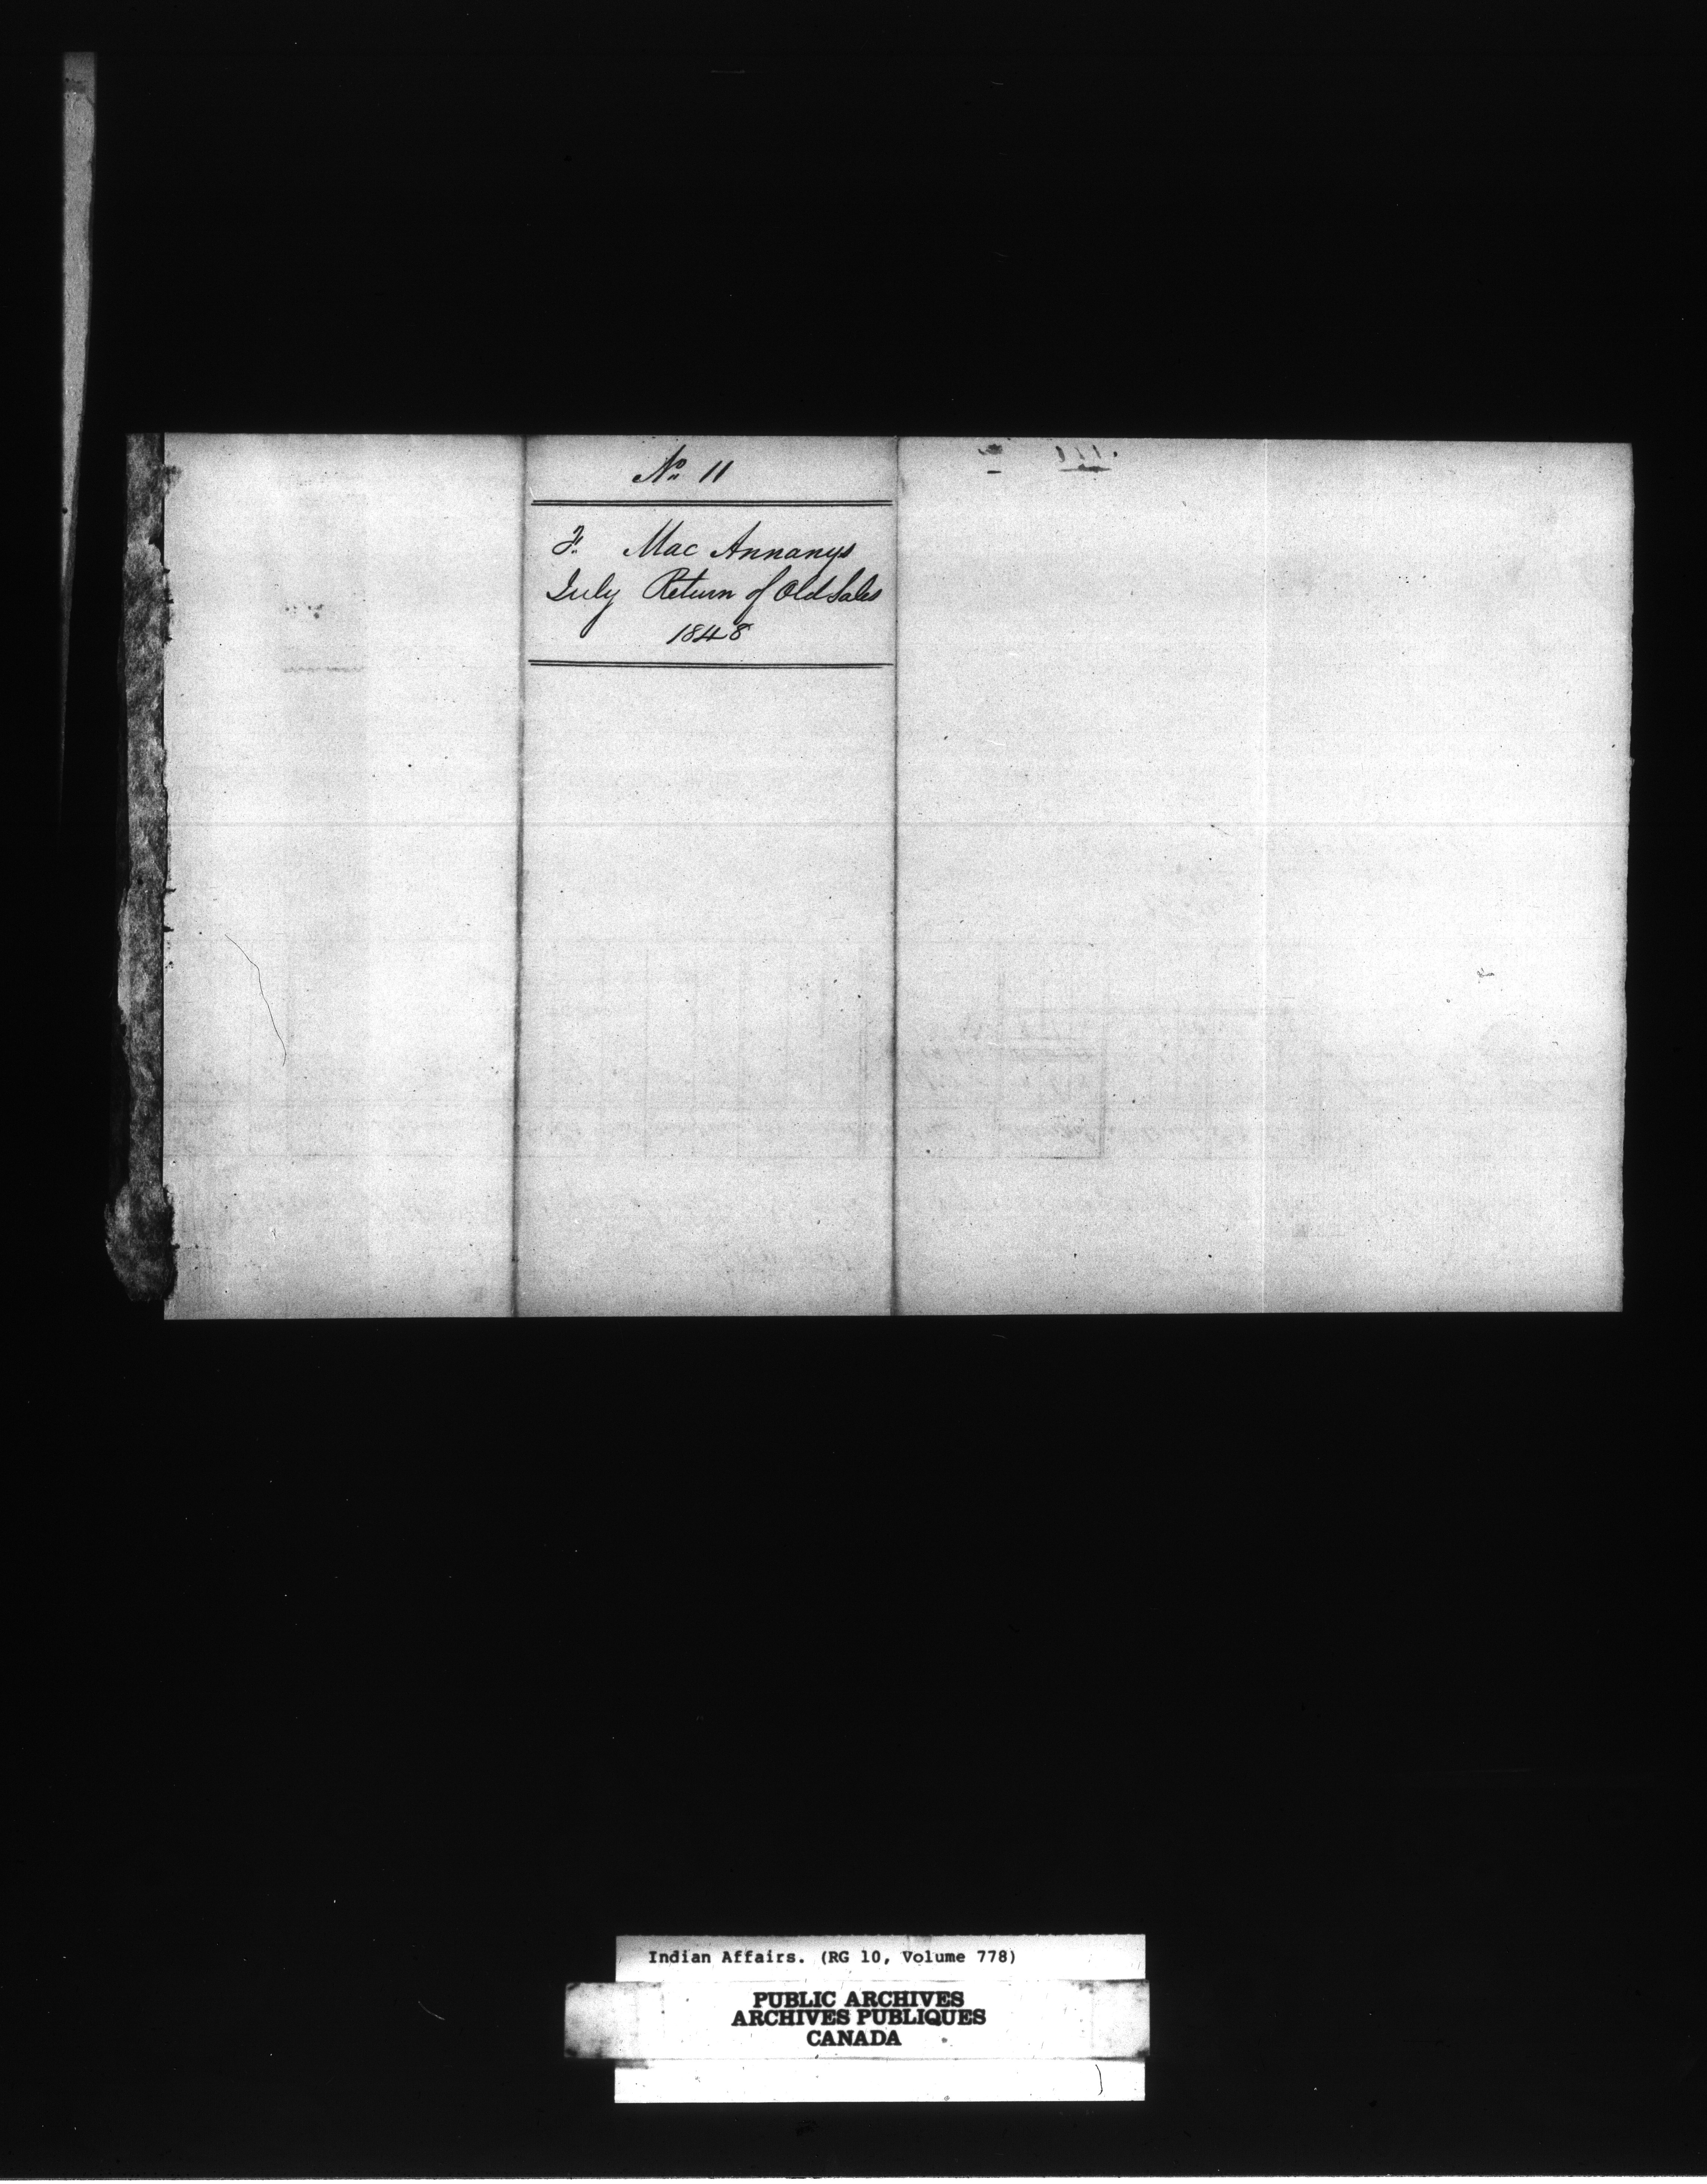 No 11
F. Mac Annanys
July Return of Old Sales
1848
Indian Affairs. (RG 10, Volume 778)
PUBLIC ARCHIVES
ARCHIVES PUBLIQUES
CANADA